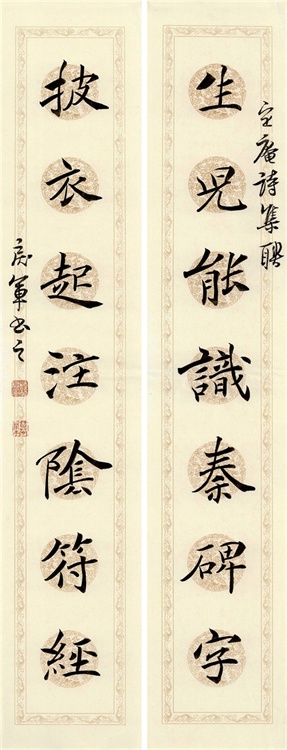 定庵詩集聯
生兒能識秦碑字
披衣起注陰符經
庚軍书之